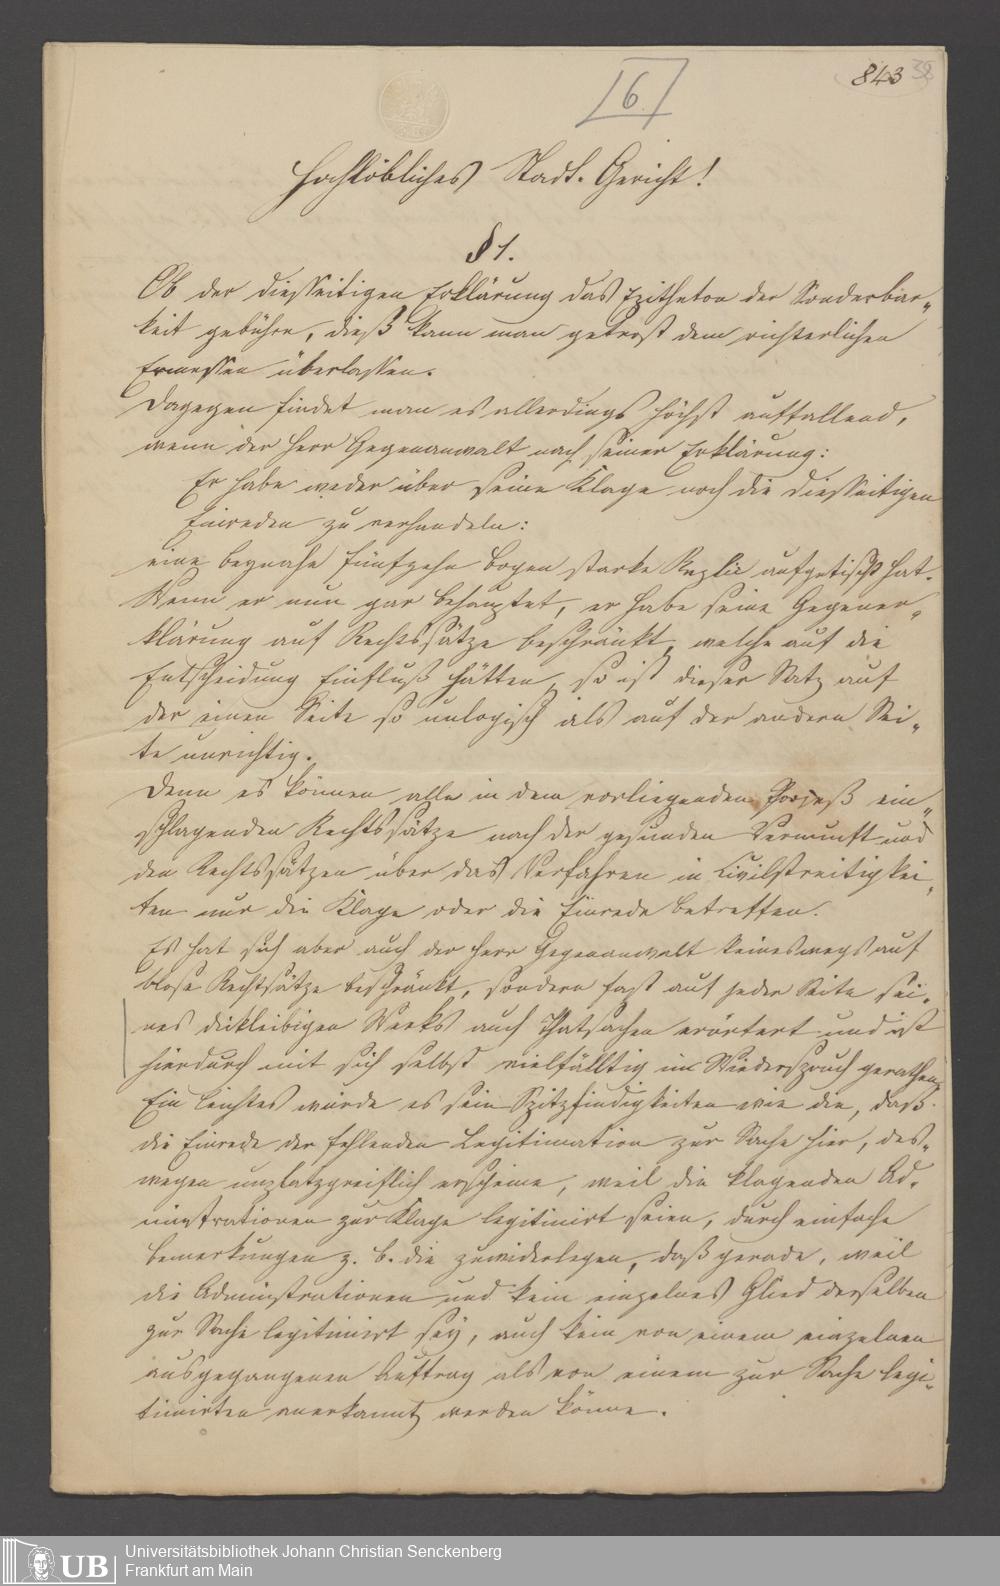 843
38
6
Hochlöbliches Stadt-Gericht!
§ 1.
Ob der diesseitigen Erklärung das Epitheton der Sonderbar-
keit gebühre, dieß kann man getrost dem richterlichen
Ermessen überlassen.
Dagegen findet man es allerdings höchst auffallend,
wenn der Herr Gegenanwalt nach seiner Erklärung:
Er habe weder über seine Klage noch die diesseitigen
Einreden zu verhandeln:
eine beynahe fünfzehn Bogen starke Replic aufgetischt hat.
Wenn er nun gar behauptet, er habe seine Gegener-
klärung auf Rechtssätze beschränkt, welche auf die
Entscheidung Einfluß hätten, so ist dieser Satz auf
der einen Seite so unlogisch als auf der andern Sei-
te unrichtig.
Denn es können alle in dem vorliegenden Prozeß ein-
schlagenden Rechtssätze nach der gesunden Vernunft und
den Rechtssätzen über das Verfahren in Civilstreitigkei-
ten nur die Klage oder die Einrede betreffen.
Es hat sich aber auch der Herr Gegenanwalt keineswegs auf
blose Rechtsätze beschränkt, sondern fast auf jeder Seite sei-
nes dickleibigen Werks auch Thatsachen erörtert und ist
hierdurch mit sich selbst vielfälltig im Wiederspruch gerathen,
Ein leichtes würde es sein Spitzfindigkeiten wie die, daß
die Einrede der fehlenden Legitimation zur Sache hier, des-
wegen unplatzgreiflich erscheine, weil die klagenden Ad-
ministrationen zur Klage legitimirt seien, durch einfache
Bemerkungen z. B. die zuwiderlegen, daß gerade, weil
die Administrationen und kein einzelnes Glied derselben
zur Sache legitimirt sey, auch kein von einem einzelnen
ausgegangener Auftrag als von einem zur Sache legi-
timirten anerkannt werden könne.
UB
Universitätsbibliothek Johann Christian Senckenberg
Frankfurt am Main